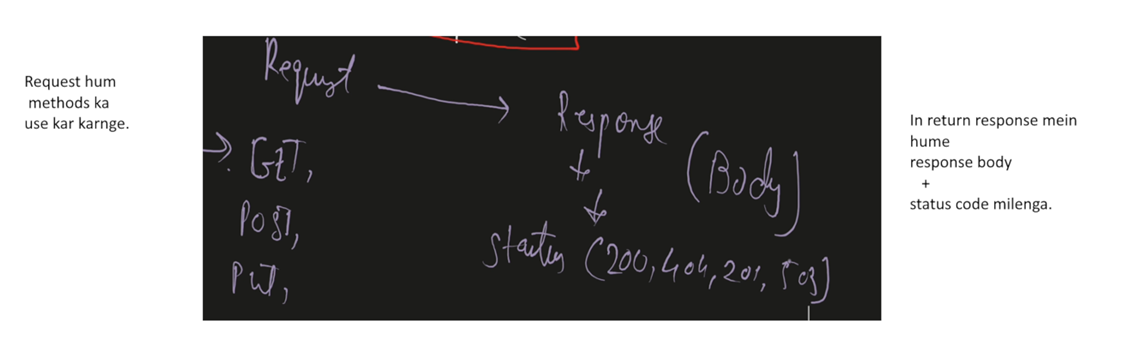 Request hum
methods ka
use kar karnge.
Request
Response
(Body)
GET,
POST,
PUT,
Status (200, 404, 201, 503)
In return response mein
hume
response body
+
status code milenga.